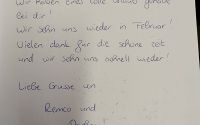 Wir haben eines tolle Urlaub gehabt
bei dir!
Wir sehn uns wieder in Februar!
Vielen dank für die schöne zeit
und wir sehn uns schnell wieder!
Liebe Grusse un
Remco und